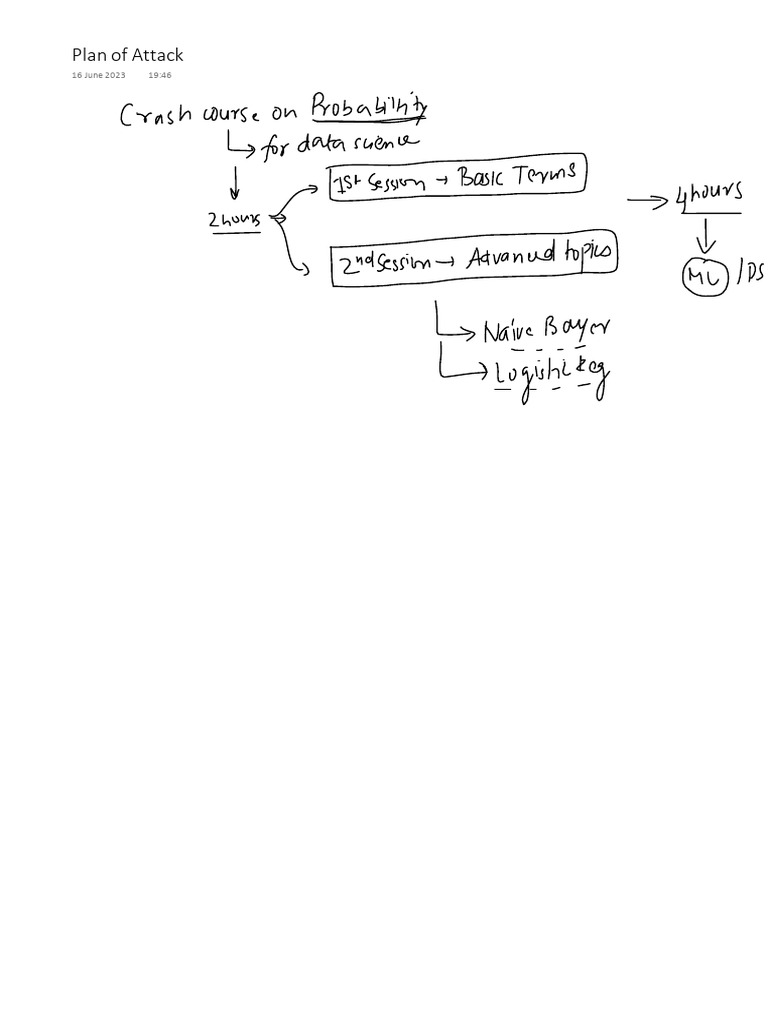 Plan of Attack
16 June 2023 19:46
Crash course on Probability
for data science
1st Session → Basic Terms
2 hours
→ 4 hours
2nd Session → Advanced topics
ML / DS
Naive Bayes
Logistic Reg